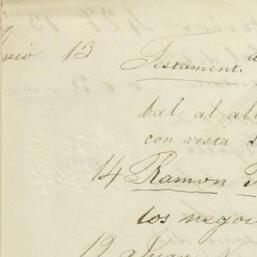 13 Testament.
bal al al
con vista
14 Ramon
los nego
19 Juan